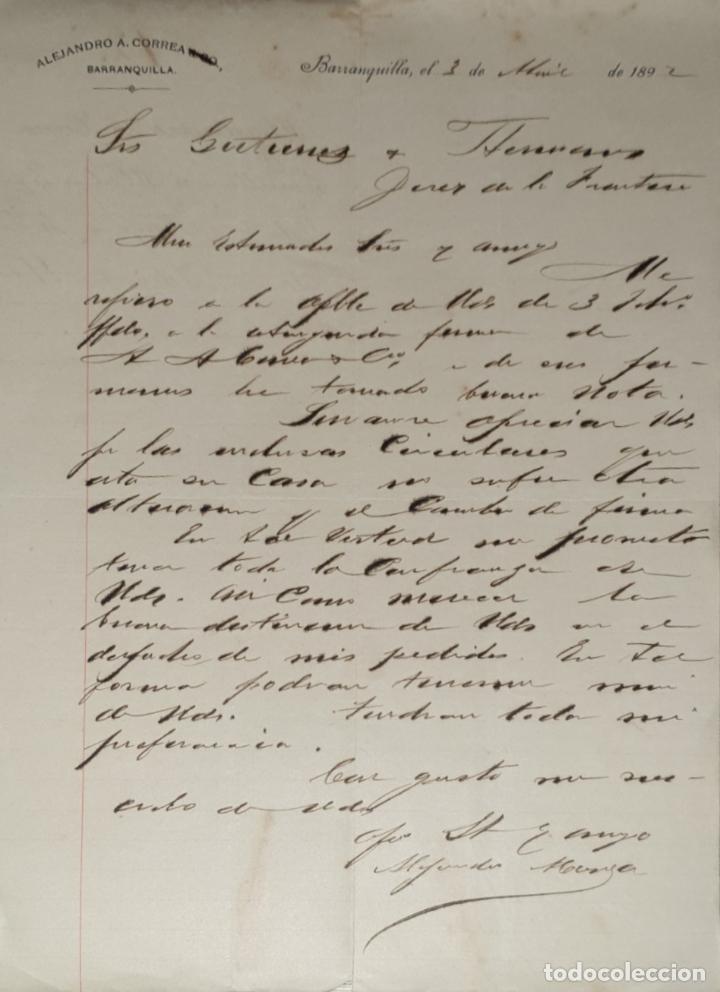 ALEJANDRO A. CORREA & CO,
BARRANQUILLA.
Barranquilla, el 3 de de 1892
Srs Gutierrez & Hermanos
Jerez de la Frontera
Mui Estimados Srs y amigos
Me
refiero a la de Uds de 3
a la firma de
A A Correa & Co, de sus for-
mones he tomado buena Nota.
apreciar Uds
pr las inclusas Circulares que
esta su Casa no sufre otra
alteracion y el Cambio de firma
En tal Virtud me prometo
tener toda la Confianza de
Uds. asi Como merecer la
buena distincion de Uds en el
despacho de mis pedidos. En tal
forma podran tenerme mui
de Uds. tendran toda mi
preferencia.
Con gusto me sus-
cribo de Uds
St y amigo
Alejandro
todocoleccion